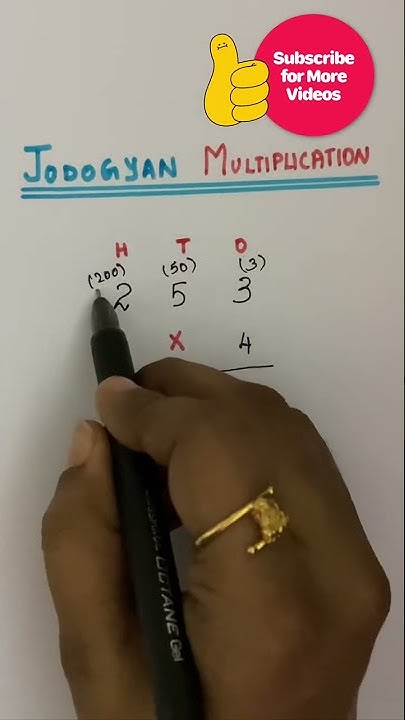 Subscribe
for More
Videos
JODOGYAN MULTIPLICATION
H T O
(200) (50) (3)
2 5 3
X 4
OCTANE Gel